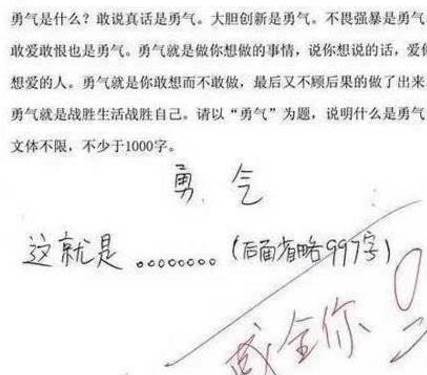 勇气是什么？敢说真话是勇气。大胆创新是勇气。不畏强暴是勇气
敢爱敢恨也是勇气。勇气就是做你想做的事情，说你想说的话，爱你
想爱的人。勇气就是你敢想而不敢做，最后又不顾后果的做了出来
勇气就是战胜生活战胜自己。请以“勇气”为题，说明什么是勇气
文体不限，不少于1000字。
勇气
这就是。。。。。。。。（后面省略997字）
成全你